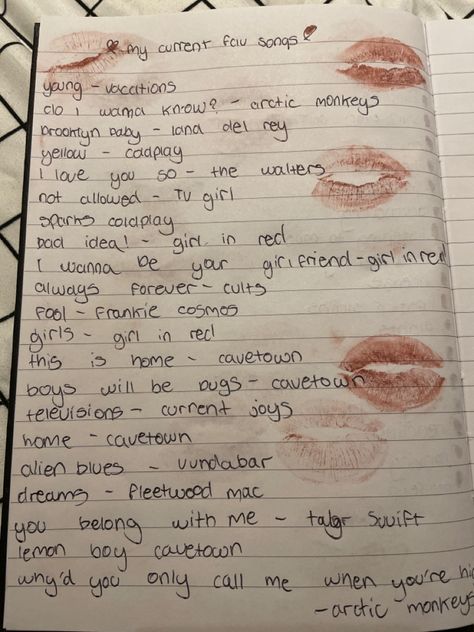 my current fav songs
young - vacations
do i wanna know? - arctic monkeys
brooklyn baby - lana del rey
yellow - coldplay
I love you so - the walters
not allowed - TV girl
sparks coldplay
bad idea! - girl in red
I wanna be your girlfriend - girl in red
always forever - cults
fool - frankie cosmos
girls - girl in red
this is home - cavetown
boys will be bugs - cavetown
televisions - current joys
home - cavetown
alien blues - vundabar
dreams - fleetwood mac
you belong with me - taylor swift
lemon boy cavetown
why'd you only call me when you're hi
- arctic monkeys